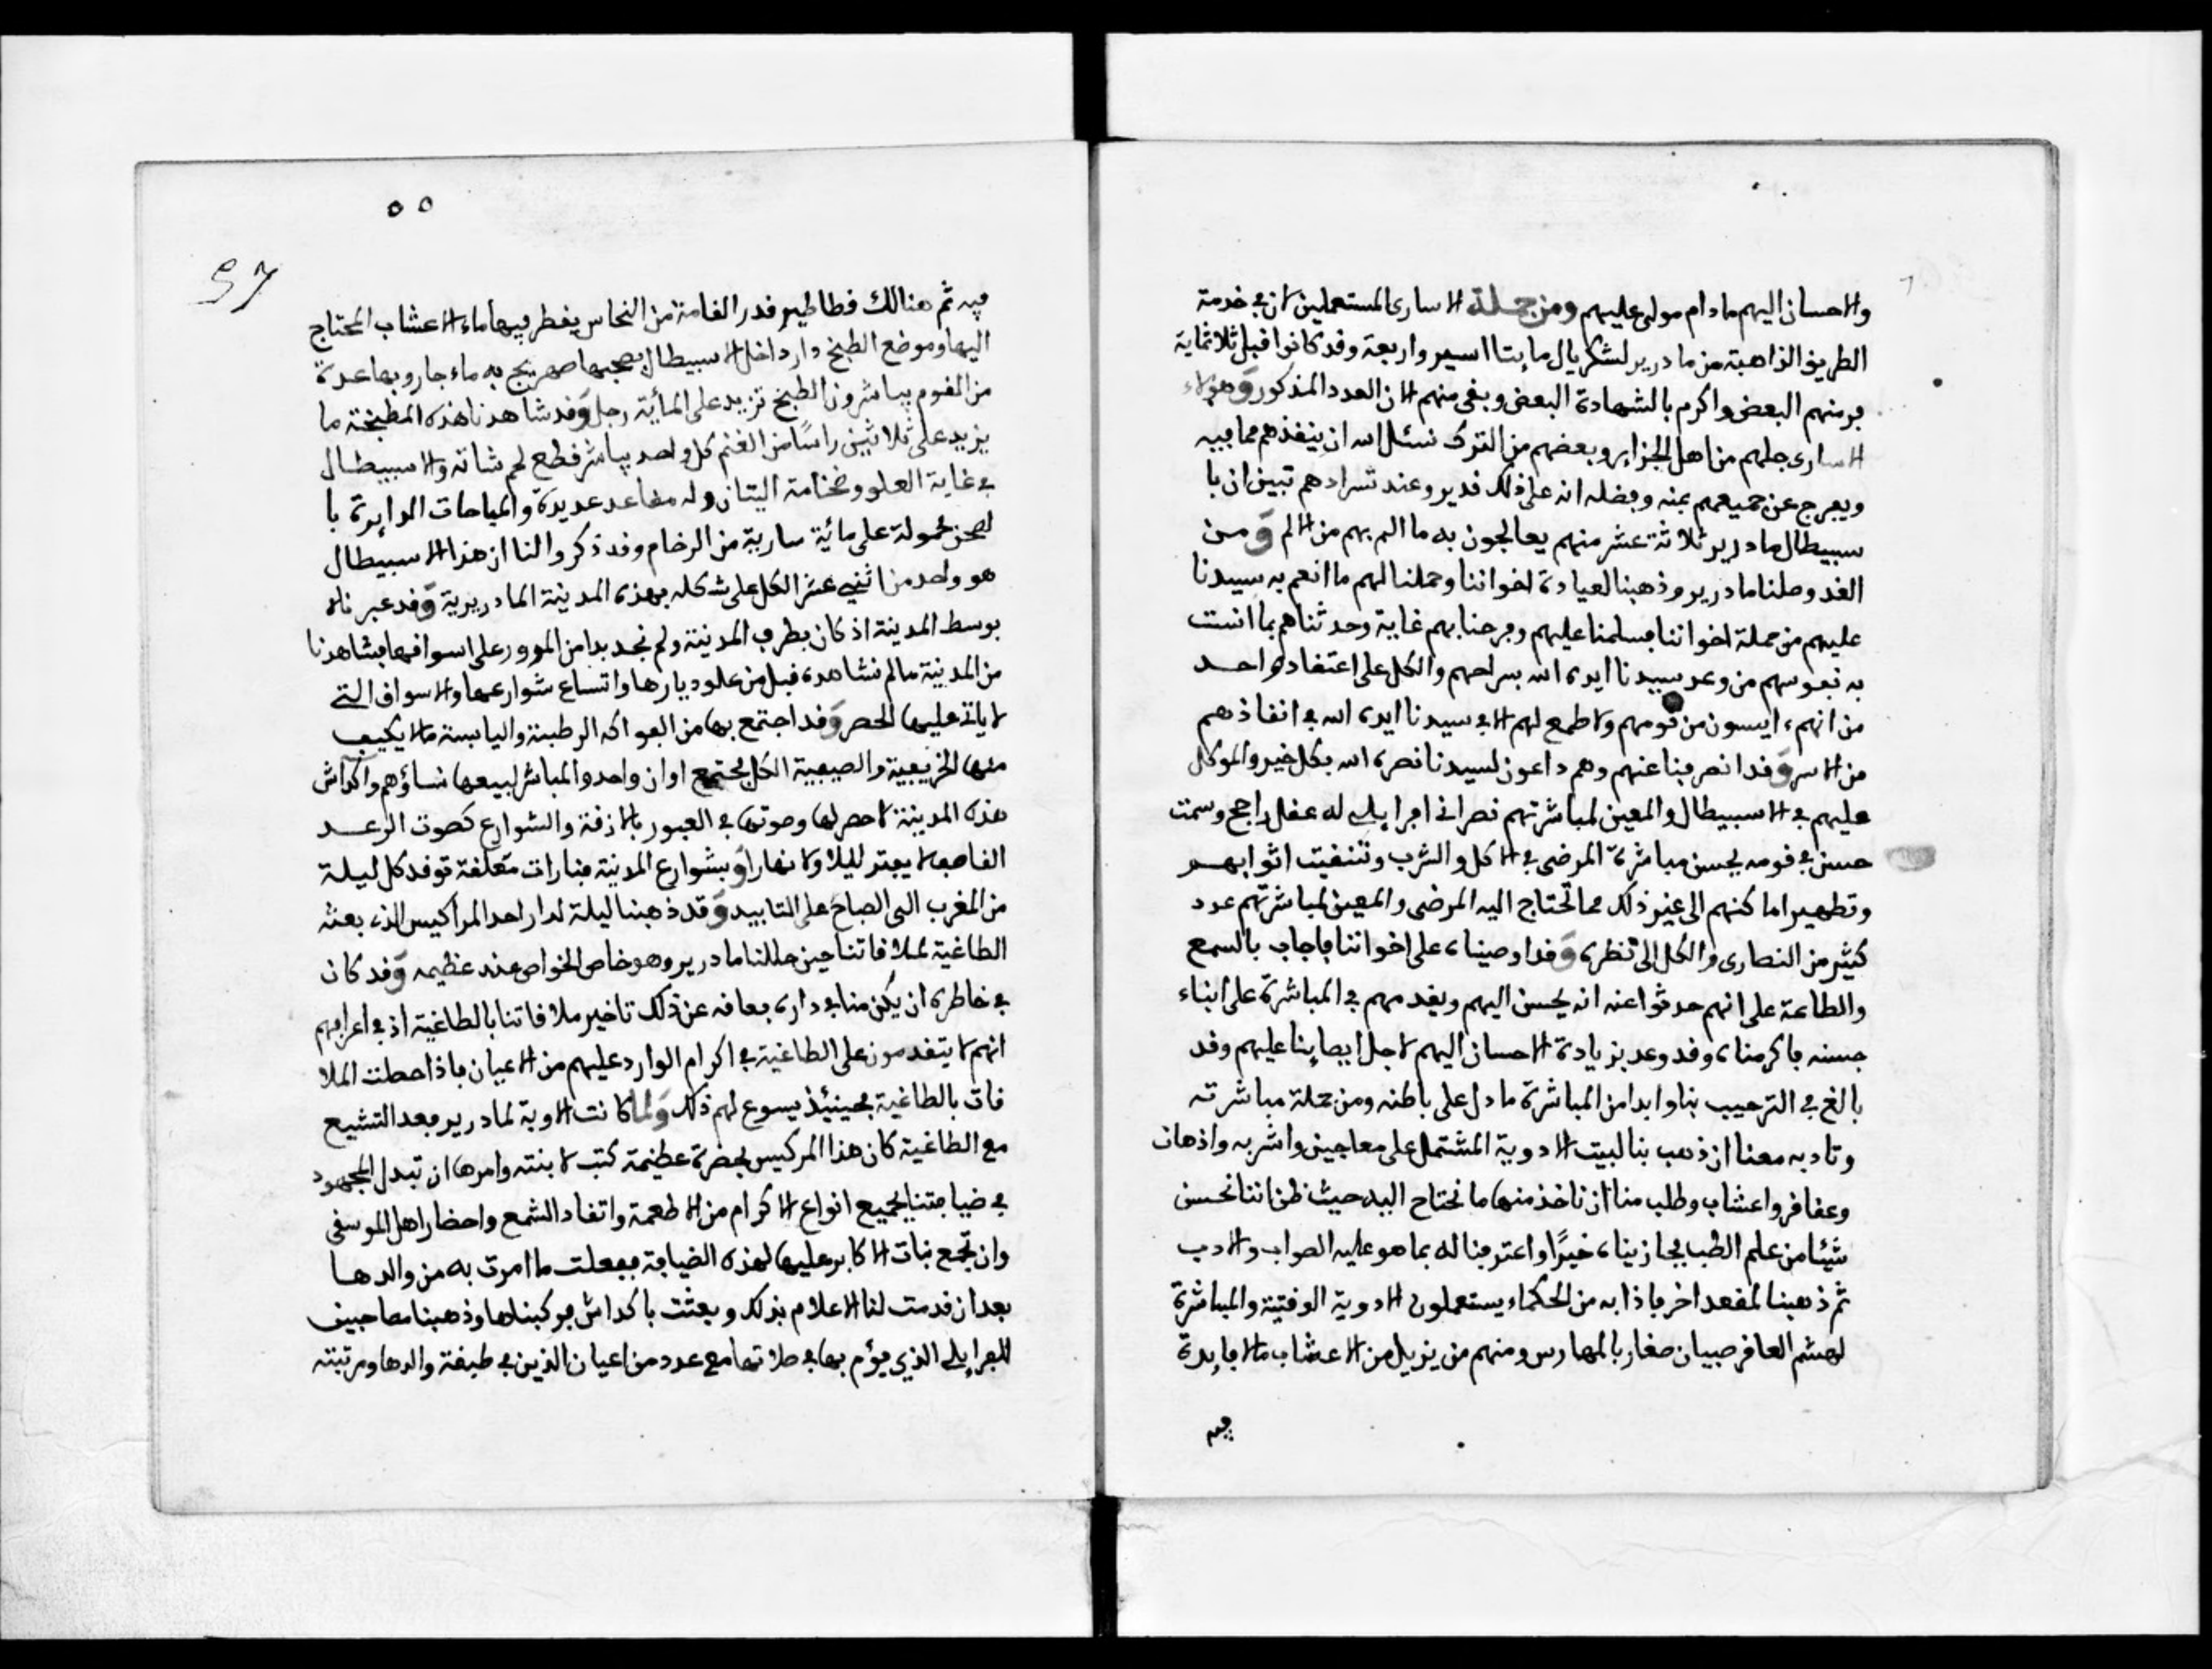 والاحسان اليهم ما دام مولى عليهم ومن جملة الاسارى المستعملين الان في خدمة
الطريق الذاهبة من مادرير لشكريال مايتا اسير واربعة وقد كانوا قبل ثلاثماية
فر منهم البعض واكرم بالشهادة البعض وبقي منهم الان العدد المذكور وهؤلاء
الاسارى جلهم من اهل الجزاير وبعضهم من الترك نسئل الله ان ينقذهم مما فيه
ويفرج عن جميعهم بمنه وفضله انه على ذلك قدير وعند تسرادهم تبين ان با
سبيطال مادرير ثلاثة عشر منهم يعالجون به ما الم بهم من الالم ومن
الغد وصلنا مادرير وذهبنا لعيادة اخواننا وحملنا لهم ما انعم به سيدنا
عليهم من جملة اخواننا فسلمنا عليهم وفرحنا بهم غاية وحدثناهم بما انست
به نفوسهم من وعد سيدنا ايده الله بسراحهم والكل على اعتقاد واحد
من انهم ءايسون من قومهم ولا طمع لهم الا في سيدنا ايده الله في انقاذهم
من الاسر وقد انصرفنا عنهم وهم داعون لسيدنا نصره الله بكل خير والموكل
عليهم في الاسبيطال والمعين لمباشرتهم نصراني افرايلي له عقل راجح وسمت
حسن في قومه يحسن مباشرة المرضى في الاكل والشرب وتنقيت اثوابهم
وتطهير اماكنهم الى غير ذلك مما تحتاج اليه المرضى والمعين لمباشرتهم عدد
كثير من النصارى والكل الى نظره وقد اوصيناه على اخواننا فاجاب بالسمع
والطاعة على انهم حدثوا عنه انه يحسن اليهم ويقدمهم في المباشرة على ابناء
جنسه فاكرمناه وقد وعد بزيادة الاحسان اليهم لاجل ايصاينا عليهم وقد
بالغ في الترحيب بنا وابدا من المباشرة ما دل على باطنه ومن جملة مباشرته
وتادبه معنا ان ذهب بنا لبيت الادوية المشتمل على معاجين واشربه واذهان
وعقاقر واعشاب وطلب منا ان ناخذ منها ما نحتاج اليه حيث ظن اننا نحسن
شيئا من علم الطب فجازيناه خيرًا واعترفنا له بما هو عليه الصواب والادب
ثم ذهبنا لمقعد اخر فاذا به من الحكماء يستعملون الادوية الوقتية والمباشرة
لهشم العاقر صبيان صغار بالمهارس ومنهم من يزيل من الاعشاب ما لا فايدة
فيه
٥٥
57
فيه ثم هنالك قطاطير قدر القامة من النحاس يقطر فيها ماء الاعشاب المحتاج
اليها وموضع الطبخ دار داخل الاسبيطال بصحبها صهريج به ماء جار وبها عدة
من القوم يباشرون الطبخ تزيد على المائة رجل وقد شاهدنا هذه المطبخة ما
يزيد على ثلاثين راسًا من الغنم كل واحد يباشر قطع لحم شاته والاسبيطال
في غاية العلو وضخامة البنان وله مقاعد عديدة والمباحات الدايرة با
لصحن محمولة على مائة سارية من الرخام وقد ذكروا لنا ان هذا الاسبيطال
هو واحد من اثني عشر الكل على شكله بهذه المدينة المادريرية وقد عبرناه
بوسط المدينة اذ كان بطرف المدينة ولم نجد بدا من المرور على اسواقها فشاهدنا
من المدينة ما لم نشاهده قبل من علو ديارها واتساع شوارعها والاسواق التي
لا ياتي عليها الحصر وقد اجتمع بها من الفواكه الرطبة واليابسة ما لا يكيف
منها الخريفية والصيفية الكل مجتمع اوان واحد والمباشر لبيعها نساؤهم واكداش
هذه المدينة لا حصر لها وصوتها في العبور بالازقة والشوارع كصوت الرعد
القاصف لا يفتر ليلا ولا نهارا وبشوارع المدينة منارات معلقة توقد كل ليلة
من المغرب الى الصباح على التابيد وقد ذهبنا ليلة لدار احد المراكيس الذي بعثه
الطاغية لملاقاتنا حين حللنا مادرير وهو خاص الخواص عند عظيمه وقد كان
في خاطره ان يكن منا في داره فعاقه عن ذلك تاخير ملاقاتنا بالطاغية اذ في اعرافهم
انهم لا يتقدمون على الطاغية في اكرام الوارد عليهم من الاعيان فاذا حصلت الملا
قات بالطاغية فحينئذ يسوغ لهم ذلك ولما كانت الاوبة لمادرير بعد التشيع
مع الطاغية كان هذا المركيس بحضرة عظيمة كتب لابنته وامرها ان تبدل المجهود
في ضيافتنا بجميع انواع الاكرام من الاطعمة واتقاد الشمع واحضار اهل الموسقى
وان تجمع بنات الاكابر عليها لهذه الضيافة ففعلت ما امرت به من والدها
بعد ان قدمت لنا الاعلام بذلك وبعثت باكداش فركبناها وذهبنا مصاحبين
للفرايلي الذي يؤم بها في صلاتها مع عدد من اعيان الذين في طبقة والدها ومرتبته